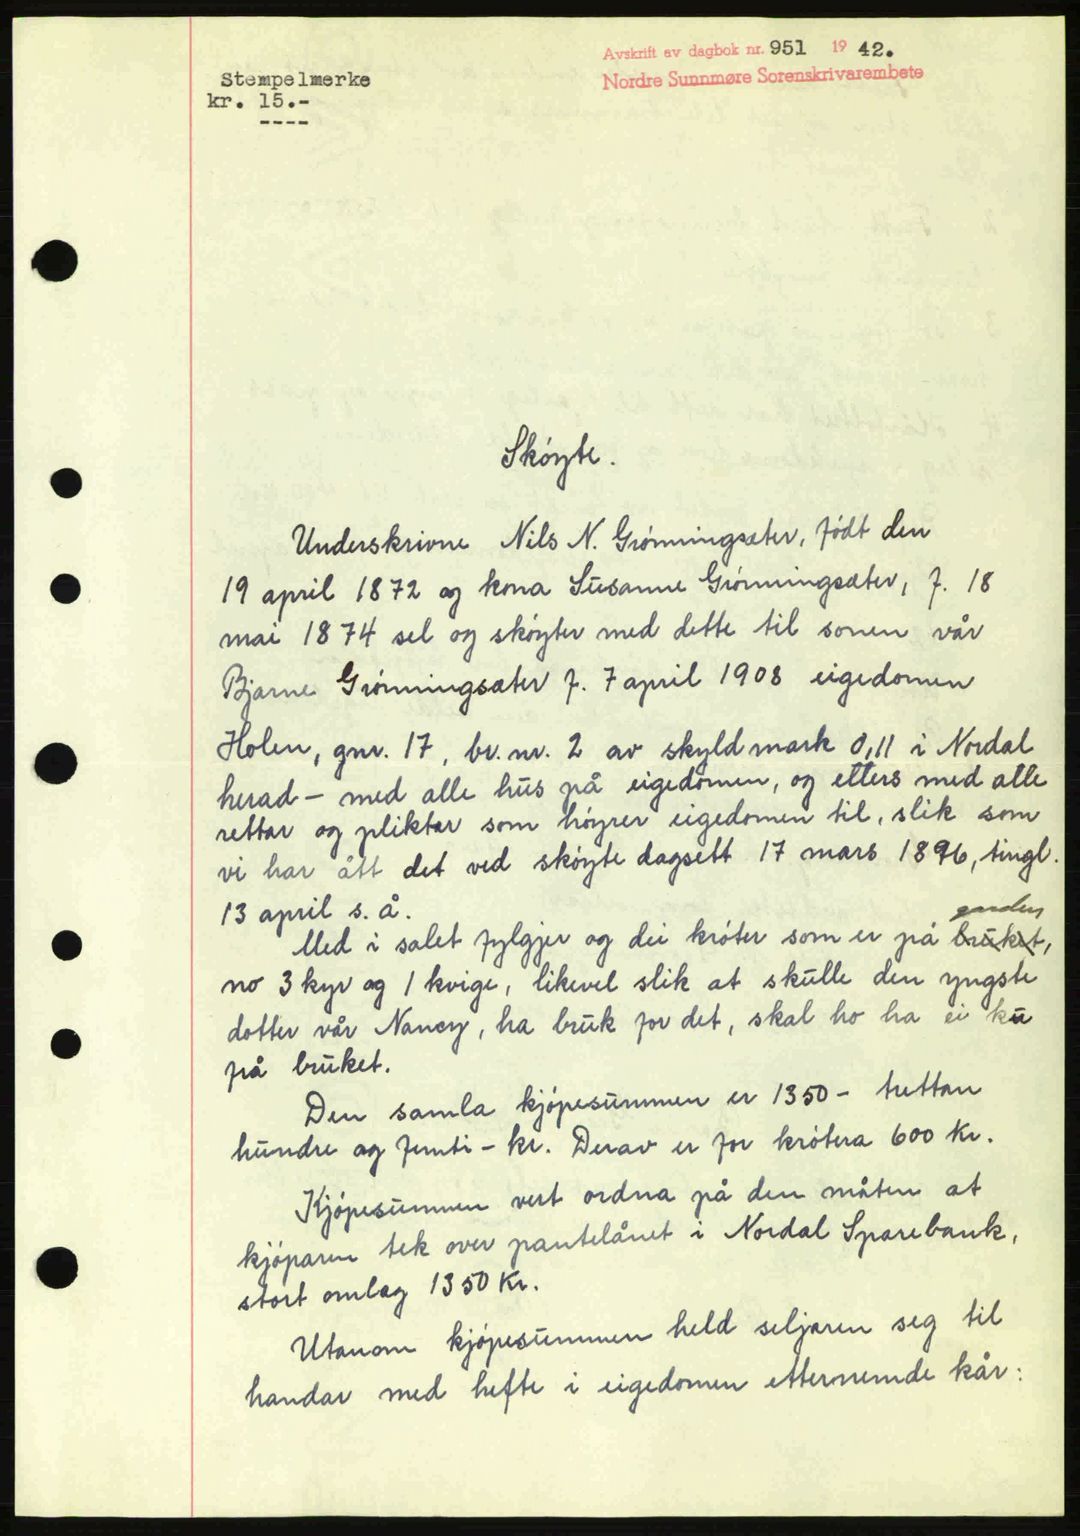 Avskrift av dagbok nr. 951 19 42.
Nordre Sunnmøre Sorenskrivarembete
Stempelmerke
kr. 15.-
----
Skóyte.
Underskrivne Nils N. Grónningsæter, født den
19 april 1872 og kona Susanne Grónningsæter, f. 18
mai 1874 sel og skóyter med dette til sonen vår
Bjarne Grónningsæter f. 7 april 1908 eigedomen
Holen, gnr. 17, br. nr. 2 av skyldmark 0,11 i Nordal
herad - med alle hus på eigedomen, og ellers med alle
rettar og pliktar som hóyrer eigedomen til, slik som
vi har ått det ved skóyte dagsett 17 mars 1896, tingl.
13 april s. å.
garden
Med i salet fylgjer og dei króter som er på bruket,
no 3 kyr og 1 kvige, likevel slik at skulle den yngste
dotter vår Nancy, ha bruk for det, skal ho ha ei ku
på bruket.
Den samla kjópesummen er 1350 - trettan
hundre og femti - kr. Derav er for krótera 600 kr.
Kjópesummen vert ordna på den måten at
kjóparen tek over pantelånet i Nordal Sparebank,
stort omlag 1350 kr.
Utanom kjópesummen held seljaren seg til
handar med hefte i eigedomen etternemde kår: